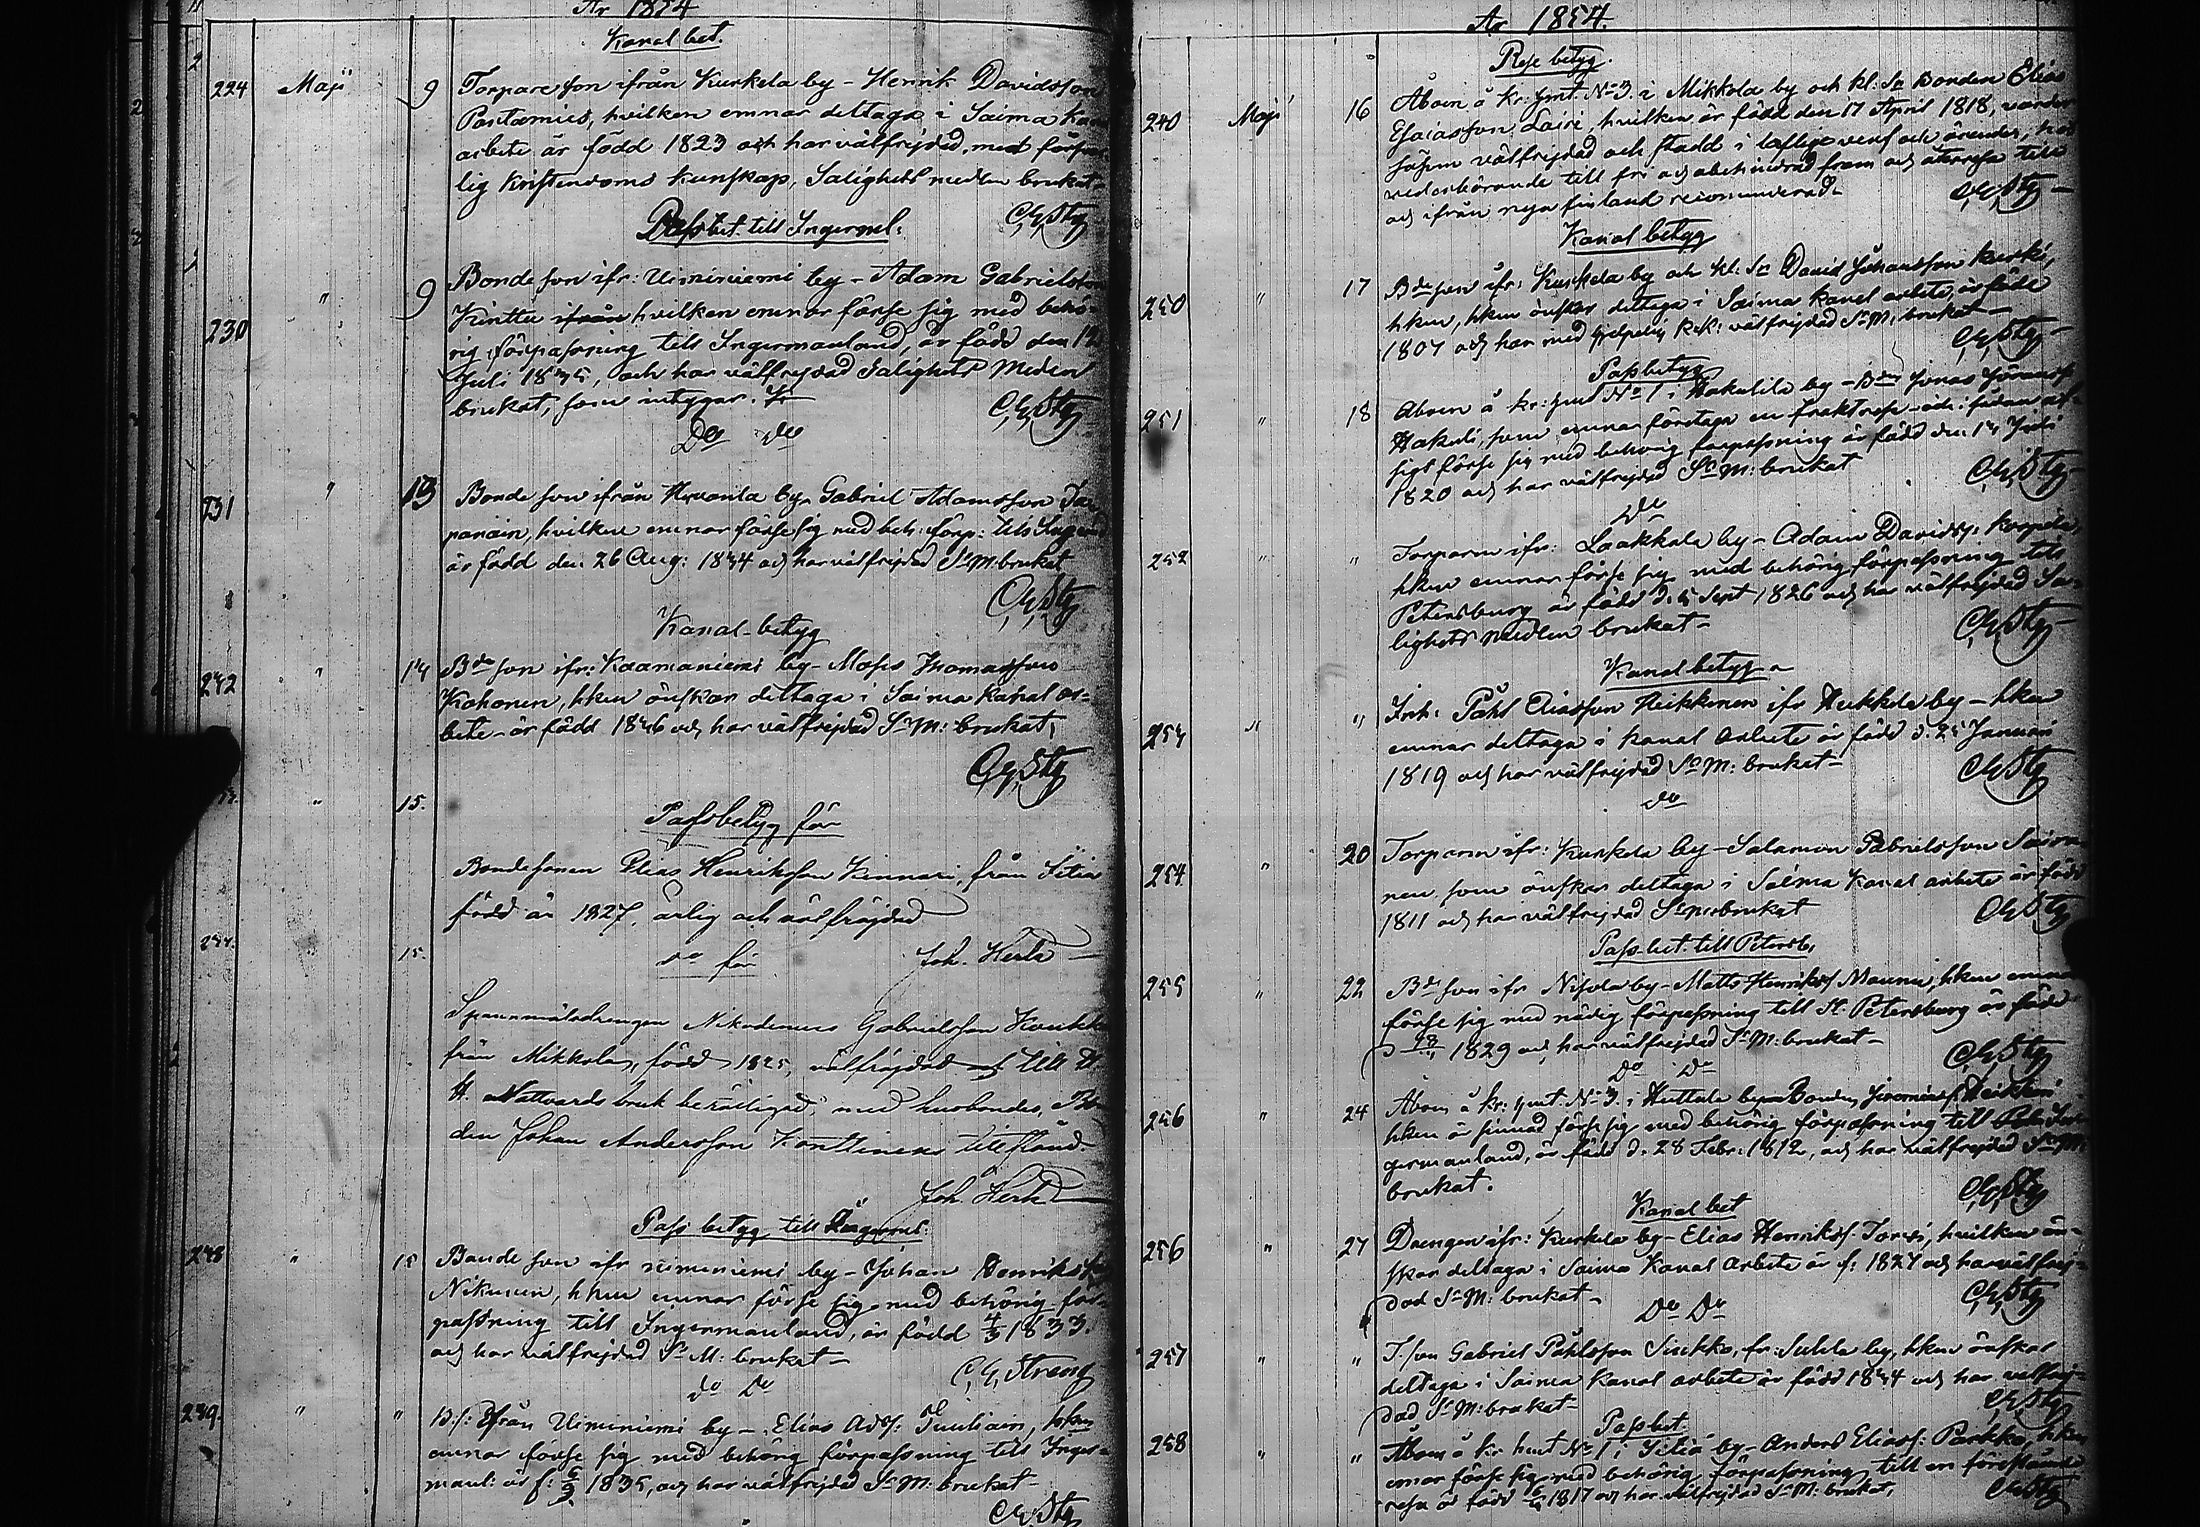 År 1854
Kanal bet.
224 Maji 9 Torpare son ifrån Kurkela by - Henrik Davidsson
hvilken ernar deltaga i Saima Kanal
arbete är född 1823 och har välfrejdad, med
lig Kristendoms kunskap, Salighets medlen brukat -
C, G, Stg
Passbet. till Ingerml:
230 " 9 Bonde son ifr: Uiminiemi by - Adam Gabrielsson
Kinttu ifrån hvilken ernar förse sig med behö-
rig förpassning till Ingermanland, är född den 12
Juli 1835, och har välfrejdad Salighets Medlen
brukat, som intygar.
C, G, Stg
Do do
231 " 13 Bonde son ifrån by - Gabriel Adamsson
hvilken ernar förse sig med beh: förp: till
är född den 26 Aug: 1834 och har välfrejdad S: M: brukat
C, G, Stg
Kanal-betyg
242 " 14 Bde son ifr: Kaamaniemi by - Moses Thomasson
Kohonen, hken önskar deltaga i Saima Kanal ar-
bete - är född 1836 och har välfrejdad S: M: brukat,
C, G, Stg
" 15.
Passbetyg för
Bondesonen Elias Henriksson Kinnari, från Sitia
född år 1827, ärlig och välfräjdad
Joh. Herld
15. do för
Nikodemus Gabrielsson
från Mikkola, född 1825, välfräjdad till
H. Nattvards bruk berättigad, med husbondes, Bon-
den Johan Andersson Konttinens tillstånd.
Joh. Herld
Pass betyg till Ingerml.
248 " 15 Bonde son ifr uiminiemi by - Johan Henriksson
Nikunen, hken ernar förse sig med behörig för-
passning till Ingermanland, är född 4/3 1833.
och har välfrejdad S: M: brukat -
C, G, Streng
do Do
249. " " B: s: Ifrån Uiminiemi by - Elias hken
ernar förse sig med behörig förpassning till Inger-
manl: är f: 1835, och har välfrejdad S: M: brukat -
C, G, Stg
År 1854.
Rese betyg.
240 Maji 16 Åboen å Kr: hmt: No 3. i Mikkola by och kl: Sn Bonden Elias
Esaiasson Lairi, hvilken är född den 17 April 1818, varder
såsom välfrejdad och stadd i laflige värf och ärender, hos
vederbörande till fri och obehindrad fram och återresa till
och ifrån nya finland recommenderad -
C, G, Stg -
Kanal betyg
250 " 17 Bde son ifr: Kurkela by och kl: Sn David Johansson Kurki,
hken, hken önskar deltaga i Saima kanal arbete, är född
1807 och har med välfrejdad S: M: brukat -
C, G, Stg -
Passbetyg
251 " 18 Åboen å kr: hmt No 1 i Hakulila by - Bdn Jonas
Hakuli, som ernar företaga en fraktresa
sigt förse sig med behörig förpassning är född den 14 Juli
1820 och har välfrejdad S: M: brukat
C, G, Stg -
Do
252 " " Torparen ifr: Laakkala by - Adam Davidss: Korpela,
hken ernar förse sig med behörig förpassning till
Petersburg är född d. 5 Sept 1826 och har välfrejdad Sa-
lighets medlen brukat -
C, G, Stg -
Kanal betyg -
253 " " Inh: Påhl Eliasson Heikkinen ifr Heikkila by - hken
ernar deltaga i kanal arbete är född d. 25 Januari
1819 och har välfrejdad S: M: brukat -
C, G, Stg
do
254 " 20 Torparen ifr: Kurkela by - Salamon Gabrielsson
nen som önskar deltaga i Saima Kanal arbete är född
1811 och har välfrejdad S: M: brukat
C, G, Stg
Pass-bet. till Petersb,
255 " 22 Bde son ifr by - Matts Henrikss Maunu, hken ernar
förse sig med nödig förpassning till St. Petersburg är född
1829 och har välfrejdad S: M: brukat -
C, G, Stg
Do Do
256 " 24 Åboen å kr: hmt: No 3. i Huttala by Bonden
hken är sinnad förse sig med behörig förpassning till In-
germanland, är född d. 28 Febr: 1812, och har välfrejdad S: M:
brukat.
C, G, Stg
Kanal bet
256 " 27 Drengen ifr: Kurkela by - Elias Henrikss: Torvi, hvilken ön-
skar deltaga i Saima Kanal Arbete är f: 1827 och har välfrej-
dad S: M: brukat -
C, G, Stg
Do Do
257 " " T: son Gabriel Påhlsson Sirkko, fr: Sulila by, hken önskar
deltaga i Saima kanal arbete är född 1834 och har välfrej-
dad S: M: brukat -
C, G, Stg
Passbet
258 " " Åboen å Kr hmt No 1 i Sitia by - Anders Eliass: Parkko, hken
ernar förse sig med behörig förpassning till en föreståande
resa är född 1817 och har välfrejdad S: M: brukat,
C, G, Stg